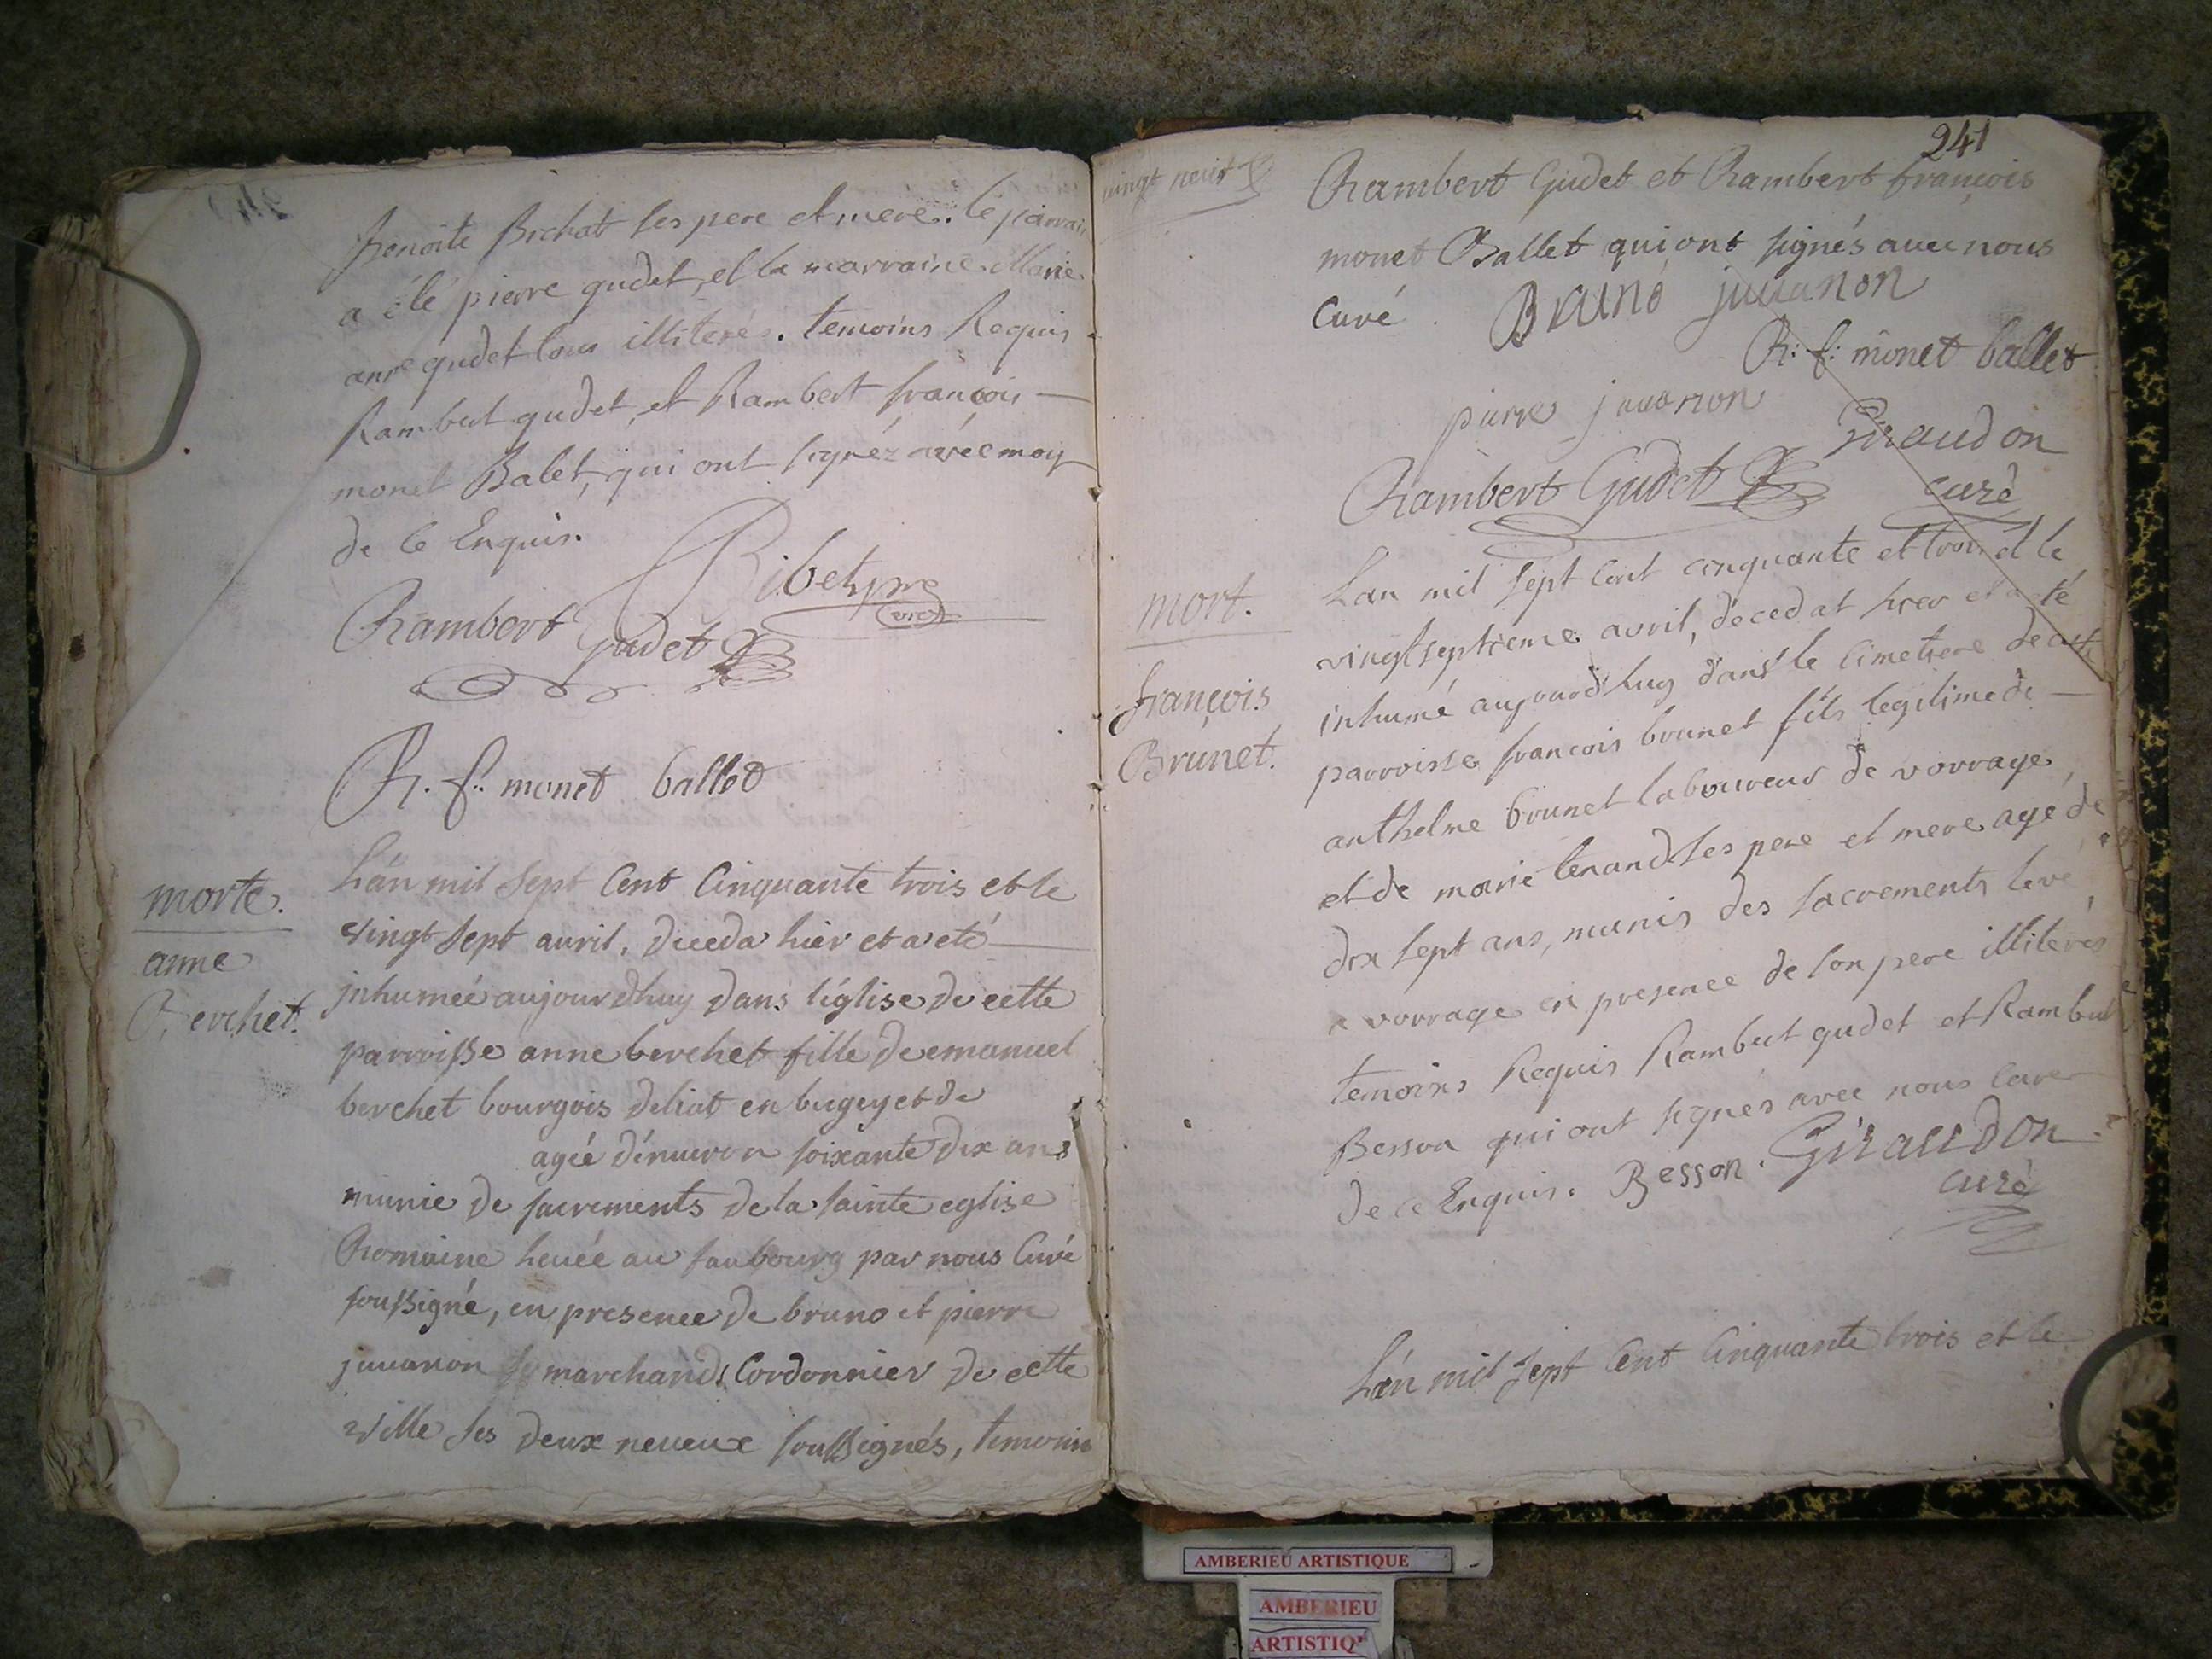 benoite Brchat ses pere et mere. le parrain
a élé pierre gudet, et la marraine Marie
anne gudet tous illiterés. temoins Requis
Rambert gudet, et Rambert françois
monet Balet, qui ont signéz avéc moy
de ce Enquis.
Ribet pre
vic
Rambert Gudet
R. f. monet ballet
morte.
anne
Berchet.
L'an mil sept Cent Cinquante trois et le
vingt sept auril, deceda hier et a eté
jnhumée aujourdhuy dans l'église de cette
parroisse anne berchet fille de emanuel
berchet bourgois deliat en bugey et de
agée d'enuiron soixante dix ans
munie de sacrements de la sainte eglise
Romaine leuée au faubourg par nous Curé
soussigné, en presence de bruno et pierre
juuanon marchands Cordonnier de cette
ville ses deux neueux soussignés, temoin
241
vingt neuf
Rambert Gudet et Rambert françois
monet Ballet qui ont signés auec nous
Curé
Bruno juuanon
R: f: monet ballet
pierre juuanon
Giraudon
curé
Rambert Gudet
mort.
françois
Brunet.
Lan mil sept cent cinquante et trois et le
vingt septieme avril, décedat hier et a eté
inhumé aujourd'huy dans le cimetiere de cette
parroisse francois brunet fils legitime de
anthelme brunet laboureur de vorrage,
et de marie tenand ses pere et mere agé de
dix sept ans, munis des sacrements levé
a vorrage en presence de son pere illiterés
temoins Requis Rambert gudet et Rambert
Besson qui ont signés avec nous Curé
de ce Enquis. Besson. Giraudon
curé
L'an mil sept Cent Cinquante trois et le
AMBERIEU ARTISTIQUE
AMBERIEU
ARTISTIQ